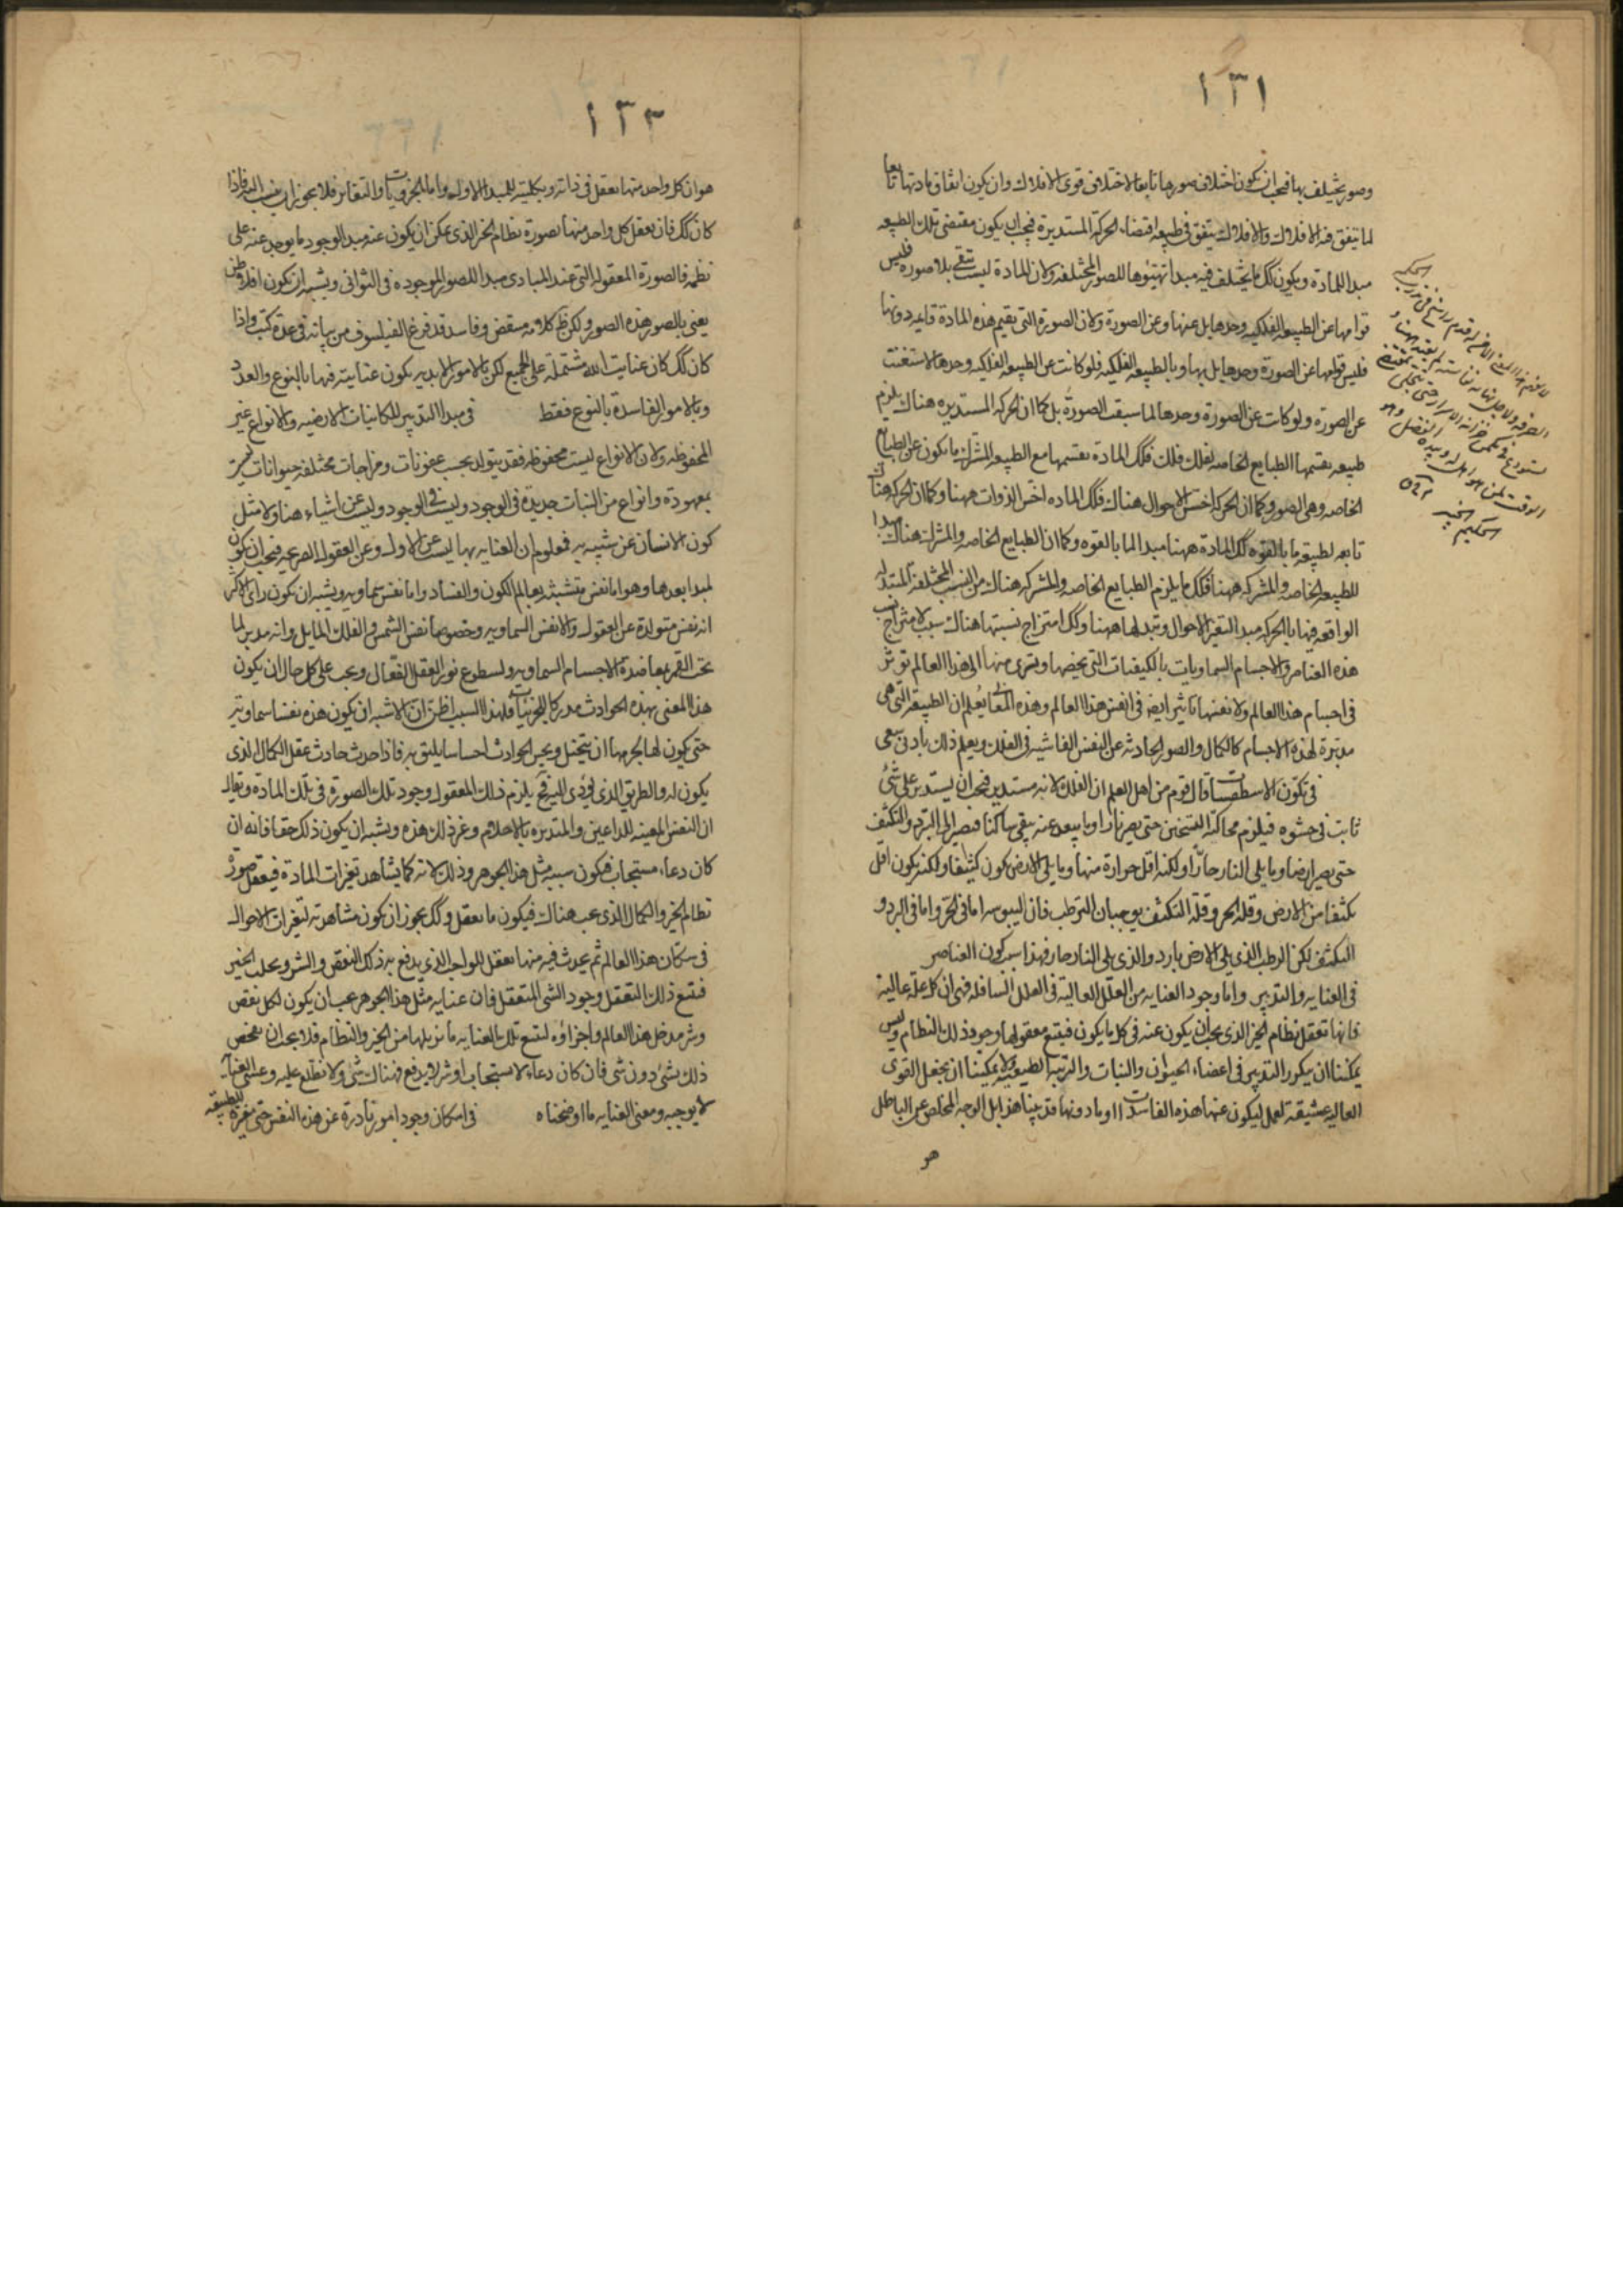 ١٣١
وصور يختلف بها فيجب ان يكون اختلاف صورها تابعا لاختلاف قوى الافلاك وان يكون اتفاق مادتها تابعا
لما يتفق فيه الافلاك والافلاك يتفق في طبيعه اقتضاء الحركة المستديرة فيجب ان يكون مقتضى تلك الطبيعه
مبدا للمادة ويكون كك ما يختلف فيه مبدا تهيئوها للصور المختلفه ولان المادة ليست تبقى بلا صوره فليس
قوامها عن الطبيعه الفلكيه وحدها بل عنها وعن الصورة ولان الصورة التي يقيم هذه المادة قايمه دونها
فليس قوامها عن الصورة وحدها بل بها وبالطبيعه الفلكيه فلو كانت عن الطبيعه الفلكيه وحدها لاستغنت
عن الصورة ولو كانت عن الصورة وحدها لما سبقت الصورة بل كما ان الحركه المستديره هناك يلزم
طبيعه يقتسمها الطبايع الخاصه لفلك فلك فكك المادة يقتسمها مع الطبيعه المشتركه ما يكون عن الطبايع
الخاصه وهي الصور وكما ان الحركه اخس الاحوال هناك فكك الماده اخس الذوات ههنا وكما ان الحركه هناك
تابعه لطبيعه ما بالقوه كك المادة ههنا مبدا لما بالقوه وكما ان الطبايع الخاصه والمشتركه هناك مبدا
للطبيعه الخاصه والمشتركه ههنا فكك ما يلزم الطبايع الخاصه والمشتركه هناك من النسب المختلفة المتبدله
الواقعه فيها بالحركه مبدا لتغير الاحوال وتبدلها ههنا وكك امتزاج نسبتها هناك سبب لامتزاج نسب
هذه العناصر والاجسام السماويات بالكيفيات التي يخصها ويسرى منها الى هذا العالم توثر
في اجسام هذا العالم ولانفسها تاثير ايضا في انفس هذا العالم وهذه المعاني يعلم ان الطبيعة التي هي
مدبرة لهذه الاجسام كالكمال والصور الحادثه عن النفس الفاشيه في الفلك ويعلم ذلك بادنى سعى
في تكون الاسطقسات قال قوم من اهل العلم ان الفلك لانه مستدير فيجب ان يستدير على شئ
ثابت في حشوه فيلزم محاكته التسخين حتى يصير نارا وما يبعد عنه يبقى ساكنا فيصير الى البرد والتكثف
حتى يصير ارضا وما يلى النار حارا ولكنه اقل حرارة منها وما يلى الارض يكون كثيفا ولكنه يكون اقل
تكثفا من الارض وقلة الحر وقلة التكثف يوجبان الترطب فان اليبوسه اما في الحر واما في البرد و
التكثف لكن الرطب الذي يلى الارض بارد والذي يلى النار حار فهذا سبب كون العناصر
في العنايه والتدبير واما وجود العنايه من العلل العالية في العلل السافله فهى ان كل علة عالية
فانها تعقل نظام الخير الذى يجب ان يكون عنه في كل ما يكون فيتبع معقولها وجود ذلك النظام وليس
يمكننا ان ينكر التدبير في اعضاء الحيوان والنبات والزينه الطبيعيه ولا يمكننا ان نجعل القوى
العاليه عشيقة لعمل ليكون عنها هذه الفاسدات او ما دونها قد بينا هذا بل الوجه المخلص عن الباطل
هو
١٣٢
هو ان كل واحد منها يعقل في ذاته وبكليته للمبدا الاول واما الجزويات والتغاير فلا يجوز ان ينسب اليه فاذا
كان كك فان تعقل كل واحد منها لصورة نظام الخير الذى يمكن ان يكون عنه مبدا لوجود ما يوجد عنه على
نظمه فالصورة المعقوله التي عند المبادى مبدا للصور الموجوده في الثوانى ويشبه ان يكون افلاطن
يعنى بالصور هذه الصور ولكن ظاهر كلامه منتقض وفاسد قد فرغ الفيلسوف من بيانه في عدة كتب واذا
كان كك كان عناية الله مشتملة على الجميع لكن بالامور الابديه يكون عنايته فيها بالنوع والعدد
وبالامور الفاسدة بالنوع فقط في مبدا التدبير للكائنات الارضيه والانواع غير
المحفوظه ولان الانواع ليست محفوظه فقد يتولد بحسب عفونات ومزاجات مختلفه حيوانات ليست
بمعهودة وانواع من النبات جديدة في الوجود وليست في الوجود وليست عن اشياء هنا ولا مثل
كون الانسان عن شبيه به فمعلوم ان العنايه بها ليست عن الاول وعن العقول الصريحه فيجب ان يكون
لمبدا بعدها وهو اما نفس متشبثة بعالم الكون والفساد واما نفس سماويه ويشبه ان يكون راى الاكثر
انه نفس متولدة عن العقول والانفس السماويه وخصوصا نفس الشمس والفلك المايل وانه مدبر لما
تحت القمر بمعاضدة الاجسام السماويه ولسطوع نور العقل الفعال ويجب على كل حال ان يكون
هذا المعنى بهذه الحوادث مدركا للجزئيات فلهذا السبب اظن ان الاشبه ان يكون هذه نفسا سماوية
حتى يكون لها بجرمها ان يتخيل ويحس الحوادث احساسا يليق به فاذا حدث حادث عقل الكمال الذى
يكون له والطريق الذى يؤدى اليه فح يلزم ذلك المعقول وجود تلك الصورة في تلك المادة ويقال
ان النفس المغيثه للداعين والمنذره بالاحلام وغير ذلك هذه ويشبه ان يكون ذلك حقا فانه ان
كان دعاء مستجاب فيكون سببه مثل هذا الجوهر وذلك لانه كما يشاهد تغيرات المادة فيعقل صورة
نظام الخير والكمال الذى يجب هناك فيكون ما يعقل وكك يجوز ان يكون مشاهدته لتغيرات الاحوال
في سكان هذا العالم ثم يحدث فيه منها تعقل للواجب الذى يدفع به ذلك النقص والشر ويجلب الخير
فيتبع ذلك التعقل وجود الشى المتعقل فان عنايه مثل هذا الجوهر يجب ان يكون لكل نقص
وشر مدخل هذا العالم واجزاؤه ليتبع تلك العنايه ما يزيلها من الخير والنظام فلا يجب ان يختص
ذلك بشئ دون شى فان كان دعاء لا يستجاب او شر لا يدفع فهناك شى ولا نطلع عليه وعسى العناية
لا يوجبه ومعنى العنايه ما اوضحناه في امكان وجود امور نادرة عن هذه النفس حتى مغيرة للطبيعه